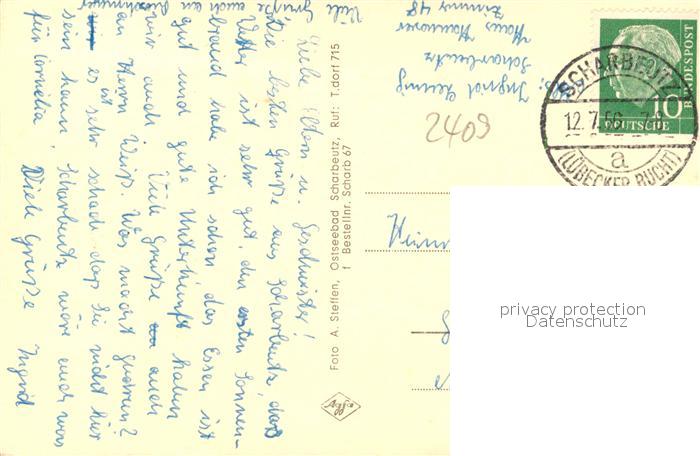 Viele Grüße auch an
Liebe Eltern u. Geschwister!
Die besten Grüße aus Scharbeutz, das
Wetter ist sehr gut, den ersten Sonnen-
brand habe ich schon das Essen ist
gut und gute Unterkunft haben
wir auch. Viele Grüße auch
an Herrn Weiß. Was macht Gudrun?
es ist sehr schade das Sie nicht hier
sein kann. Scharbeutz wäre auch was
für Cornelia! Viele Grüße Ingrid
Foto A. Steffen, Ostseebad Scharbeutz, Ruf: T.dorf 715
f Bestellnr. Scharb 67
Agfa
Ingrid
Scharbeutz
Haus Hannover
Zimmer 48
2409
SCHARBEUTZ
12.7.56
a
(LÜBECKER BUCHT)
10
DEUTSCHE
BUNDESPOST
privacy protection
Datenschutz